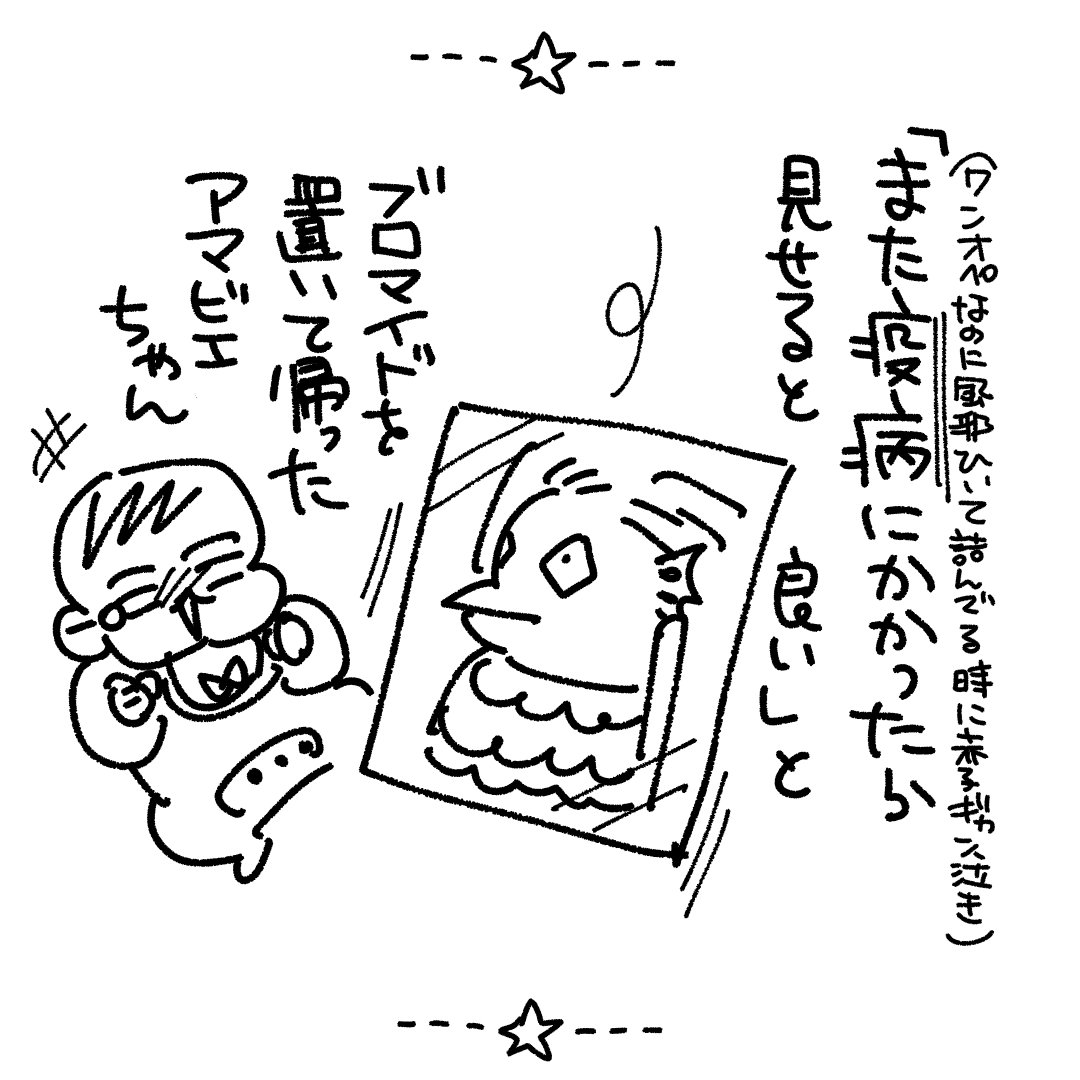 (ワンオペなのに風邪ひいて詰んでる時に赤子ギャン泣き)
「また疫病にかかったら
見せると 良い」と
ブロマイドを
置いて帰った
アマビエ
ちゃん